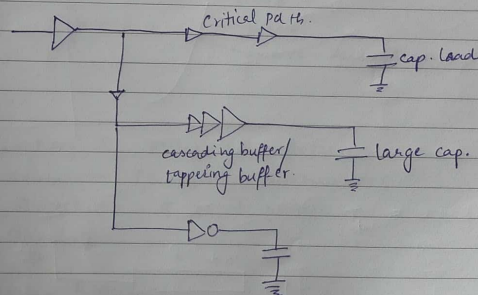 Critical path.
cap. load
cascading buffer/
tappeing buffer.
large cap.